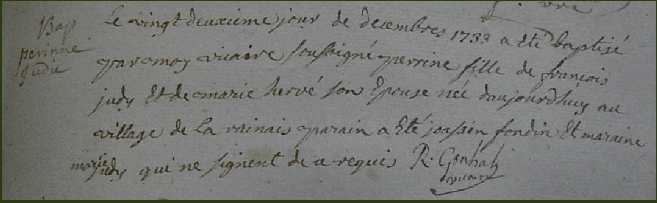 Bap
perinne
Judic
le vingt deuxieme jour de decembres 1733 a eté baptisé
par moy vicaire soussigné perrine fille de francois
judy Et de marie hervé son Epouse née daujourdhuy au
village de la rainais parain a Eté joassin fondin Et maraine
marie judy qui ne signent de a requis R. Gonhal
vicaire